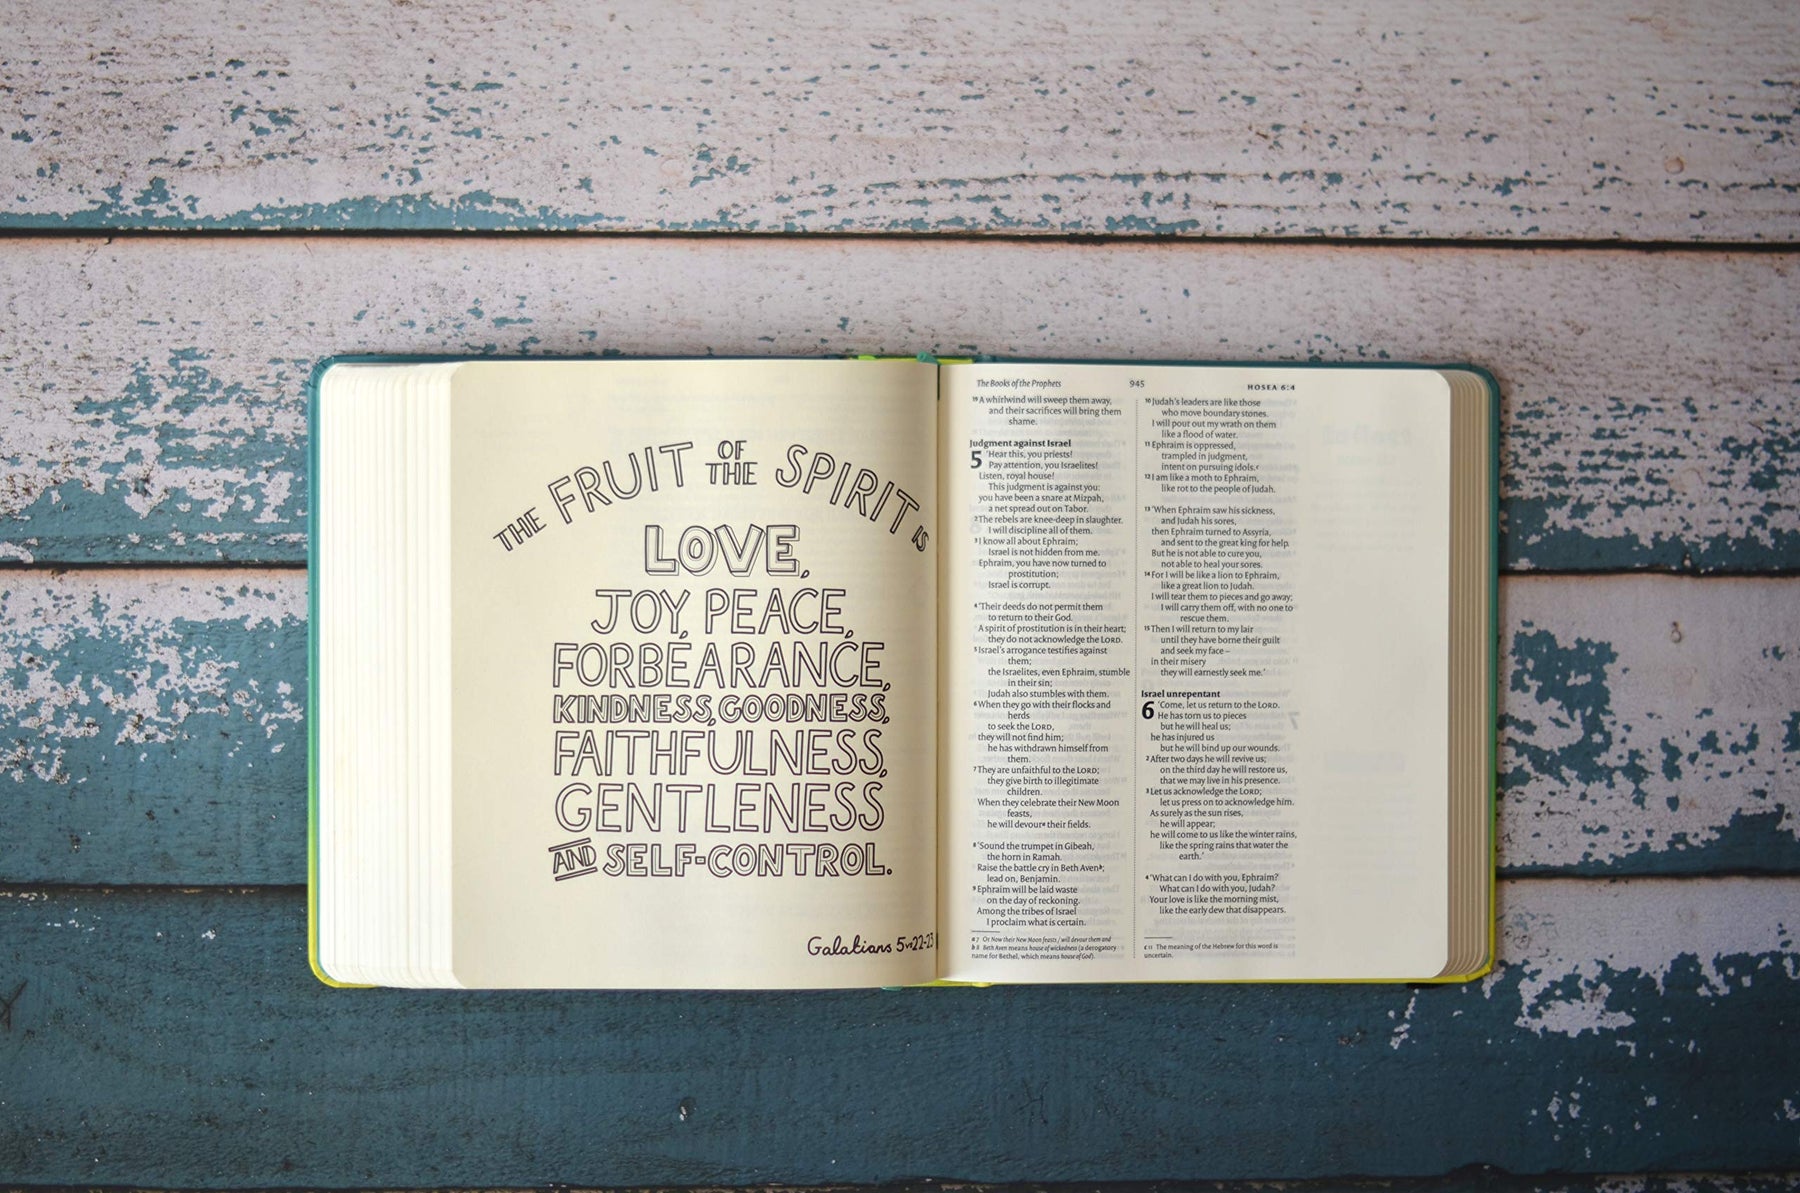 THE FRUIT OF THE SPIRIT IS
LOVE,
JOY, PEACE,
FORBEARANCE,
KINDNESS, GOODNESS,
FAITHFULNESS,
GENTLENESS
AND SELF-CONTROL.
Galatians 5vs22-23
The Books of the Prophets
945
HOSEA 6:4
19 A whirlwind will sweep them away,
and their sacrifices will bring them
shame.
Judgment against Israel
5 'Hear this, you priests!
Pay attention, you Israelites!
Listen, royal house!
This judgment is against you:
you have been a snare at Mizpah,
a net spread out on Tabor.
2 The rebels are knee-deep in slaughter.
I will discipline all of them.
3 I know all about Ephraim;
Israel is not hidden from me.
Ephraim, you have now turned to
prostitution;
Israel is corrupt.
4 'Their deeds do not permit them
to return to their God.
A spirit of prostitution is in their heart;
they do not acknowledge the LORD.
5 Israel's arrogance testifies against
them;
the Israelites, even Ephraim, stumble
in their sin;
Judah also stumbles with them.
6 When they go with their flocks and
herds
to seek the LORD,
they will not find him;
he has withdrawn himself from
them.
7 They are unfaithful to the LORD;
they give birth to illegitimate
children.
When they celebrate their New Moon
feasts,
he will devour a their fields.
8 'Sound the trumpet in Gibeah,
the horn in Ramah.
Raise the battle cry in Beth Aven b;
lead on, Benjamin.
9 Ephraim will be laid waste
on the day of reckoning.
Among the tribes of Israel
I proclaim what is certain.
a 7 Or Now their New Moon feasts / will devour them and
b 8 Beth Aven means house of wickedness (a derogatory
name for Bethel, which means house of God).
10 Judah's leaders are like those
who move boundary stones.
I will pour out my wrath on them
like a flood of water.
11 Ephraim is oppressed,
trampled in judgment,
intent on pursuing idols. c
12 I am like a moth to Ephraim,
like rot to the people of Judah.
13 'When Ephraim saw his sickness,
and Judah his sores,
then Ephraim turned to Assyria,
and sent to the great king for help.
But he is not able to cure you,
not able to heal your sores.
14 For I will be like a lion to Ephraim,
like a great lion to Judah.
I will tear them to pieces and go away;
I will carry them off, with no one to
rescue them.
15 Then I will return to my lair
until they have borne their guilt
and seek my face –
in their misery
they will earnestly seek me.'
Israel unrepentant
6 'Come, let us return to the LORD.
He has torn us to pieces
but he will heal us;
he has injured us
but he will bind up our wounds.
2 After two days he will revive us;
on the third day he will restore us,
that we may live in his presence.
3 Let us acknowledge the LORD;
let us press on to acknowledge him.
As surely as the sun rises,
he will appear;
he will come to us like the winter rains,
like the spring rains that water the
earth.'
4 'What can I do with you, Ephraim?
What can I do with you, Judah?
Your love is like the morning mist,
like the early dew that disappears.
c 11 The meaning of the Hebrew for this word is
uncertain.